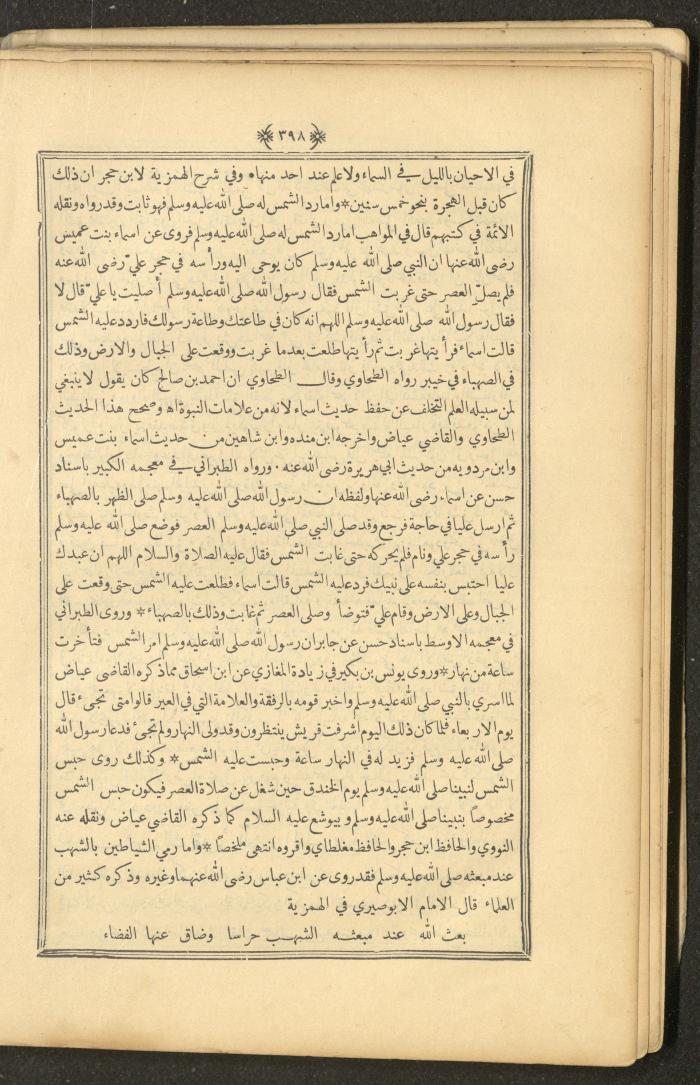 (٣٩٨)
في الاحيان بالليل في السماء ولا علم عند احد منها، وفي شرح الهمزية لابن حجر ان ذلك
كان قبل الهجرة بنحو خمس سنين * واما رد الشمس له صلى الله عليه وسلم فهو ثابت وقد رواه ونقله
الائمة في كتبهم قال في المواهب اما رد الشمس له صلى الله عليه وسلم فروى عن اسماء بنت عميس
رضى الله عنها ان النبي صلى الله عليه وسلم كان يوحى اليه ورأسه في حجر عليّ رضى الله عنه
فلم يصلّ العصر حتى غربت الشمس فقال رسول الله صلى الله عليه وسلم أصليت يا عليّ قال لا
فقال رسول الله صلى الله عليه وسلم اللهم انه كان في طاعتك وطاعة رسولك فاردد عليه الشمس
قالت اسماء فرأيتها غربت ثم رأيتها طلعت بعد ما غربت ووقعت على الجبال والارض وذلك
في الصهباء في خيبر رواه الطحاوي وقال الطحاوي ان احمد بن صالح كان يقول لا ينبغي
لمن سبيله العلم التخلف عن حفظ حديث اسماء لانه من علامات النبوة اه وصحح هذا الحديث
الطحاوي والقاضي عياض واخرجه ابن منده وابن شاهين من حديث اسماء بنت عميس
وابن مردويه من حديث ابي هريرة رضى الله عنه . ورواه الطبراني في معجمه الكبير باسناد
حسن عن اسماء رضى الله عنها ولفظه ان رسول الله صلى الله عليه وسلم صلى الظهر بالصهباء
ثم ارسل عليا في حاجة فرجع وقد صلى النبي صلى الله عليه وسلم العصر فوضع صلى الله عليه وسلم
رأسه في حجر علي ونام فلم يحركه حتى غابت الشمس فقال عليه الصلاة والسلام اللهم ان عبدك
عليا احتبس بنفسه على نبيك فرد عليه الشمس قالت اسماء فطلعت عليه الشمس حتى وقعت على
الجبال وعلى الارض وقام عليّ فتوضأ وصلى العصر ثم غابت وذلك بالصهباء * وروى الطبراني
في معجمه الاوسط باسناد حسن عن جابر ان رسول الله صلى الله عليه وسلم امر الشمس فتأخرت
ساعة من نهار * وروى يونس بن بكير في زيادة المغازي عن ابن اسحاق مما ذكره القاضى عياض
لما اسري بالنبي صلى الله عليه وسلم واخبر قومه بالرفقة والعلامة التي في العير قالوا متى تجىء قال
يوم الاربعاء فلما كان ذلك اليوم اشرفت قريش ينتظرون وقد ولى النهار ولم تجئ فدعا رسول الله
صلى الله عليه وسلم فزيد له في النهار ساعة وحبست عليه الشمس * وكذلك روى حبس
الشمس لنبينا صلى الله عليه وسلم يوم الخندق حين شغل عن صلاة العصر فيكون حبس الشمس
مخصوصاً بنبينا صلى الله عليه وسلم وبيوشع عليه السلام كما ذكره القاضى عياض ونقله عنه
النووي والحافظ ابن حجر والحافظ مغلطاي واقروه انتهى ملخصاً * واما رمي الشياطين بالشهب
عند مبعثه صلى الله عليه وسلم فقد روى عن ابن عباس رضى الله عنهما وغيره وذكره كثير من
العلماء قال الامام الابوصيري في الهمزية
بعث الله عند مبعثه الشهب حراسا وضاق عنها الفضاء